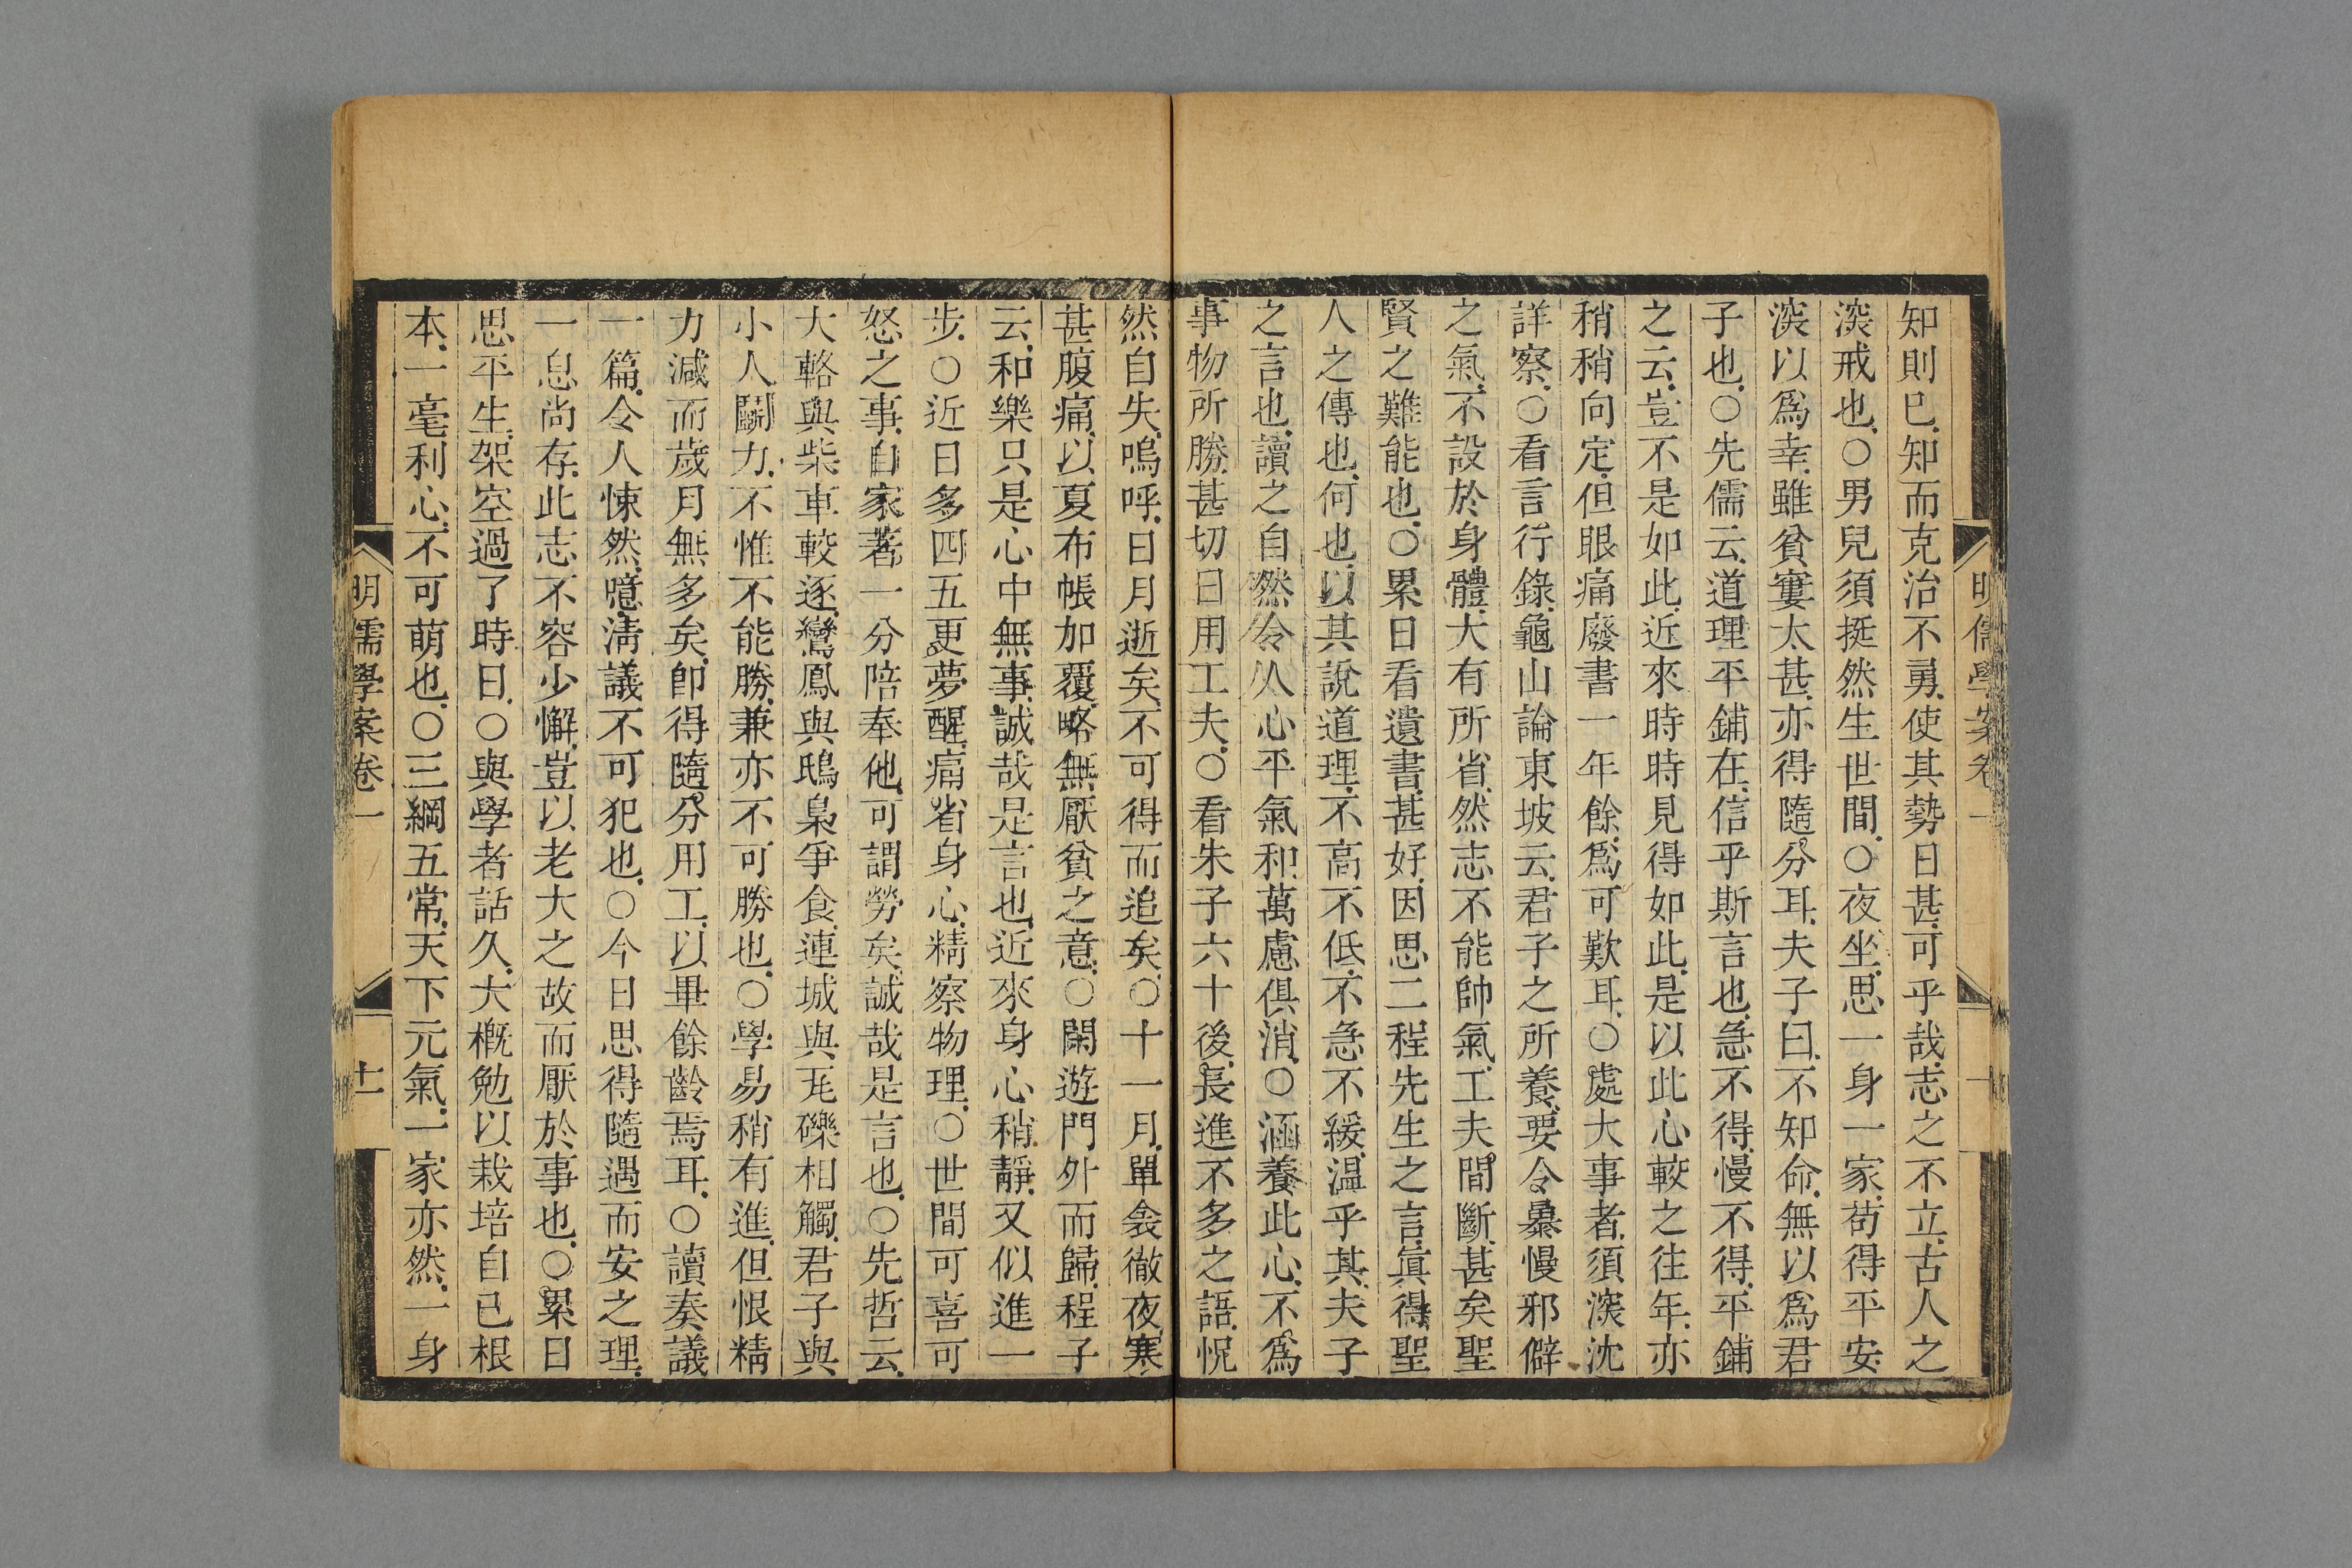 知則已知而克治不勇使其勢日甚可乎哉志之不立古人之
深戒也○男兒須挺然生世間○夜坐思一身一家苟得平安
深以爲幸雖貧窶太甚亦得隨分耳夫子曰不知命無以爲君
子也○先儒云道理平鋪在信乎斯言也急不得慢不得平鋪
之云豈不是如此近來時時見得如此是以此心較之往年亦
稍稍向定但眼痛廢書一年餘爲可歎耳○處大事者須深沈
詳察○看言行錄龜山論東坡云君子之所養要令暴慢邪僻
之氣不設於身體大有所省然志不能帥氣工夫間斷甚矣聖
賢之難能也○累日看遺書甚好因思二程先生之言眞得聖
人之傳也何也以其說道理不高不低不急不緩温乎其夫子
之言也讀之自然令人心平氣和萬慮俱消○涵養此心不爲
事物所勝甚切日用工夫○看朱子六十後長進不多之語怳
然自失嗚呼日月逝矣不可得而追矣○十一月單衾徹夜寒
甚腹痛以夏布帳加覆略無厭貧之意○閑遊門外而歸程子
云和樂只是心中無事誠哉是言也近來身心稍靜又似進一
步○近日多四五更夢醒痛省身心精察物理○世間可喜可
怒之事自家著一分陪奉他可謂勞矣誠哉是言也○先哲云
大輅與柴車較逐鸞鳳與鴟梟爭食連城與瓦礫相觸君子與
小人鬭力不惟不能勝兼亦不可勝也○學易稍有進但恨精
力減而歲月無多矣卽得隨分用工以畢餘齡焉耳○讀奏議
一篇令人悚然噫淸議不可犯也○今日思得隨遇而安之理
一息尚存此志不容少懈豈以老大之故而厭於事也○累日
思平生架空過了時日○與學者話久大槪勉以栽培自己根
本一毫利心不可萌也○三綱五常天下元氣一家亦然一身
明儒學案卷一
十一